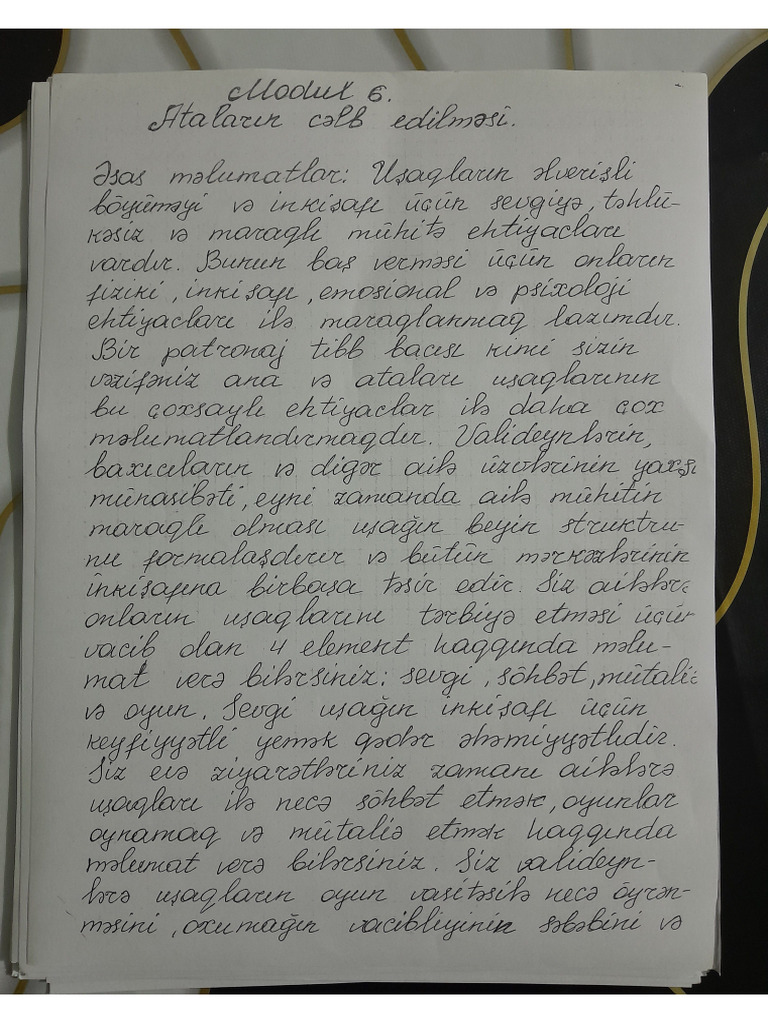 Modul 6.
Ataların cəlb edilməsi.
Əsas məlumatlar: Uşaqların əlverişli
böyüməyi və inkişafı üçün sevgiyə, təhlü-
kəsiz və maraqlı mühitə ehtiyacları
vardır. Bunun baş verməsi üçün onların
fiziki, inkişafı, emosional və psixoloji
ehtiyacları ilə maraqlanmaq lazımdır.
Bir patronaj tibb bacısı kimi sizin
vəzifəniz ana və ataları uşaqlarının
bu çoxsaylı ehtiyaclar ilə daha çox
məlumatlandırmaqdır. Valideynlərin,
baxıcıların və digər ailə üzvlərinin yaxşı
münasibəti, eyni zamanda ailə mühitin
maraqlı olması uşağın beyin struktru-
nu formalaşdırır və bütün mərkəzlərinin
inkişafına birbaşa təsir edir. Siz ailələrə
onların uşaqlarını tərbiyə etməsi üçün
vacib olan 4 element haqqında məlu-
mat verə bilərsiniz: sevgi, söhbət, mütaliə
və oyun. Sevgi uşağın inkişafı üçün
keyfiyyətli yemək qədər əhəmiyyətlidir.
Siz evə ziyarətləriniz zamanı ailələrə
uşaqları ilə necə söhbət etmək, oyunlar
oynamaq və mütaliə etmək haqqında
məlumat verə bilərsiniz. Siz valideyn-
lərə uşaqların oyun vasitəsilə necə öyrən-
məsini, oxumağın vacibliyinin səbəbini və